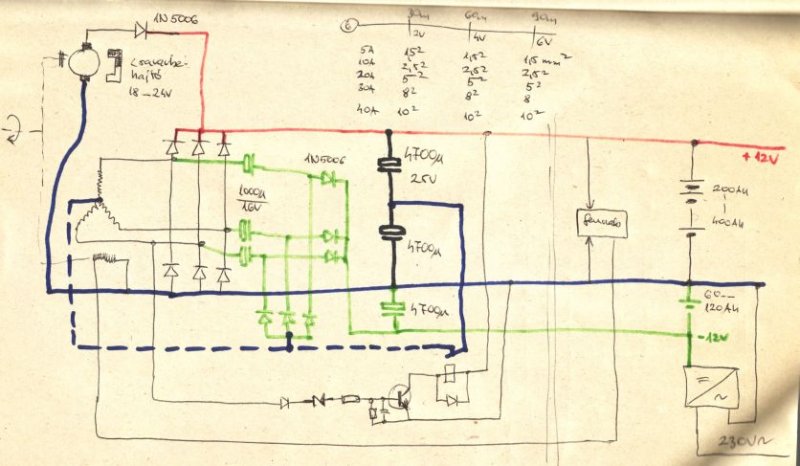 1N5006
18 – 24V
6
30m 60m 90m
2V 4V 6V
5A 1,5² 1,5² 1,5 mm²
10A 2,5² 2,5² 2,5²
20A 5² 5² 5²
30A 8² 8² 8
40A 10² 10² 10²
4700µ
25V
1N5006
1000µ
16V
+12V
200Ah
400Ah
4700µ
4700µ
60–
120Ah
-12V
=
~
230V~